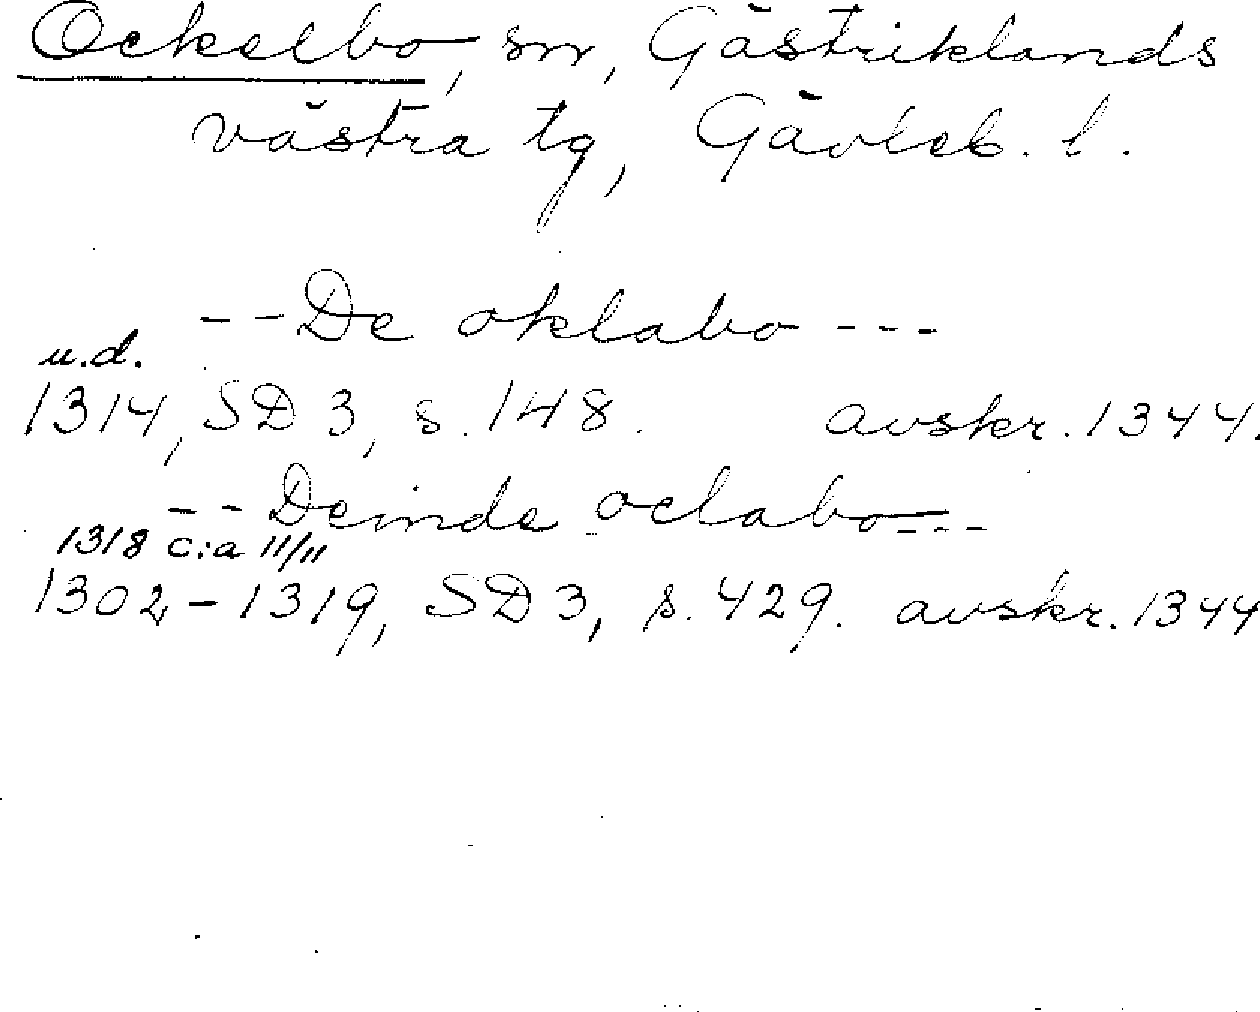 Ockelbo, sn, Gästriklands
västra tg, Gävleb. l.
--De oklabo---
u.d.
1314, SD 3, s. 148. avskr. 1344.
--Deinde oclabo---
1318 c:a 11/11
1302-1319, SD 3, s. 429. avskr. 1344